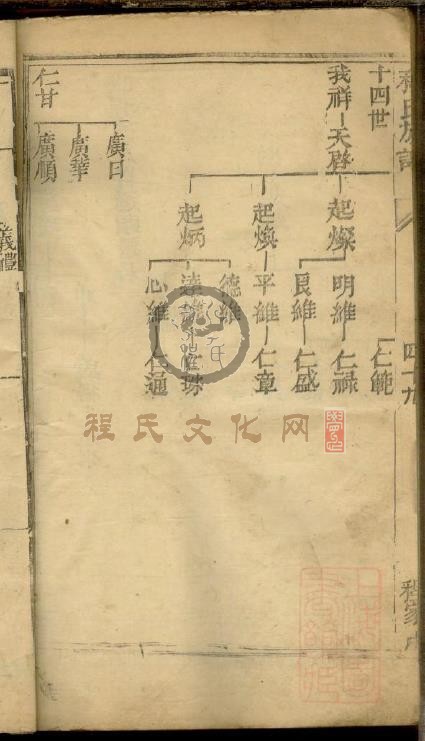 程氏族譜
四十九
十四世
我祥 天啓 起燦 明維 仁祿
仁能
良維 仁盛
起煥 平維 仁章
起炳 德維
達維
心維 仁通
仁甘 廣日
廣華
廣順
義
禮
程氏文化网